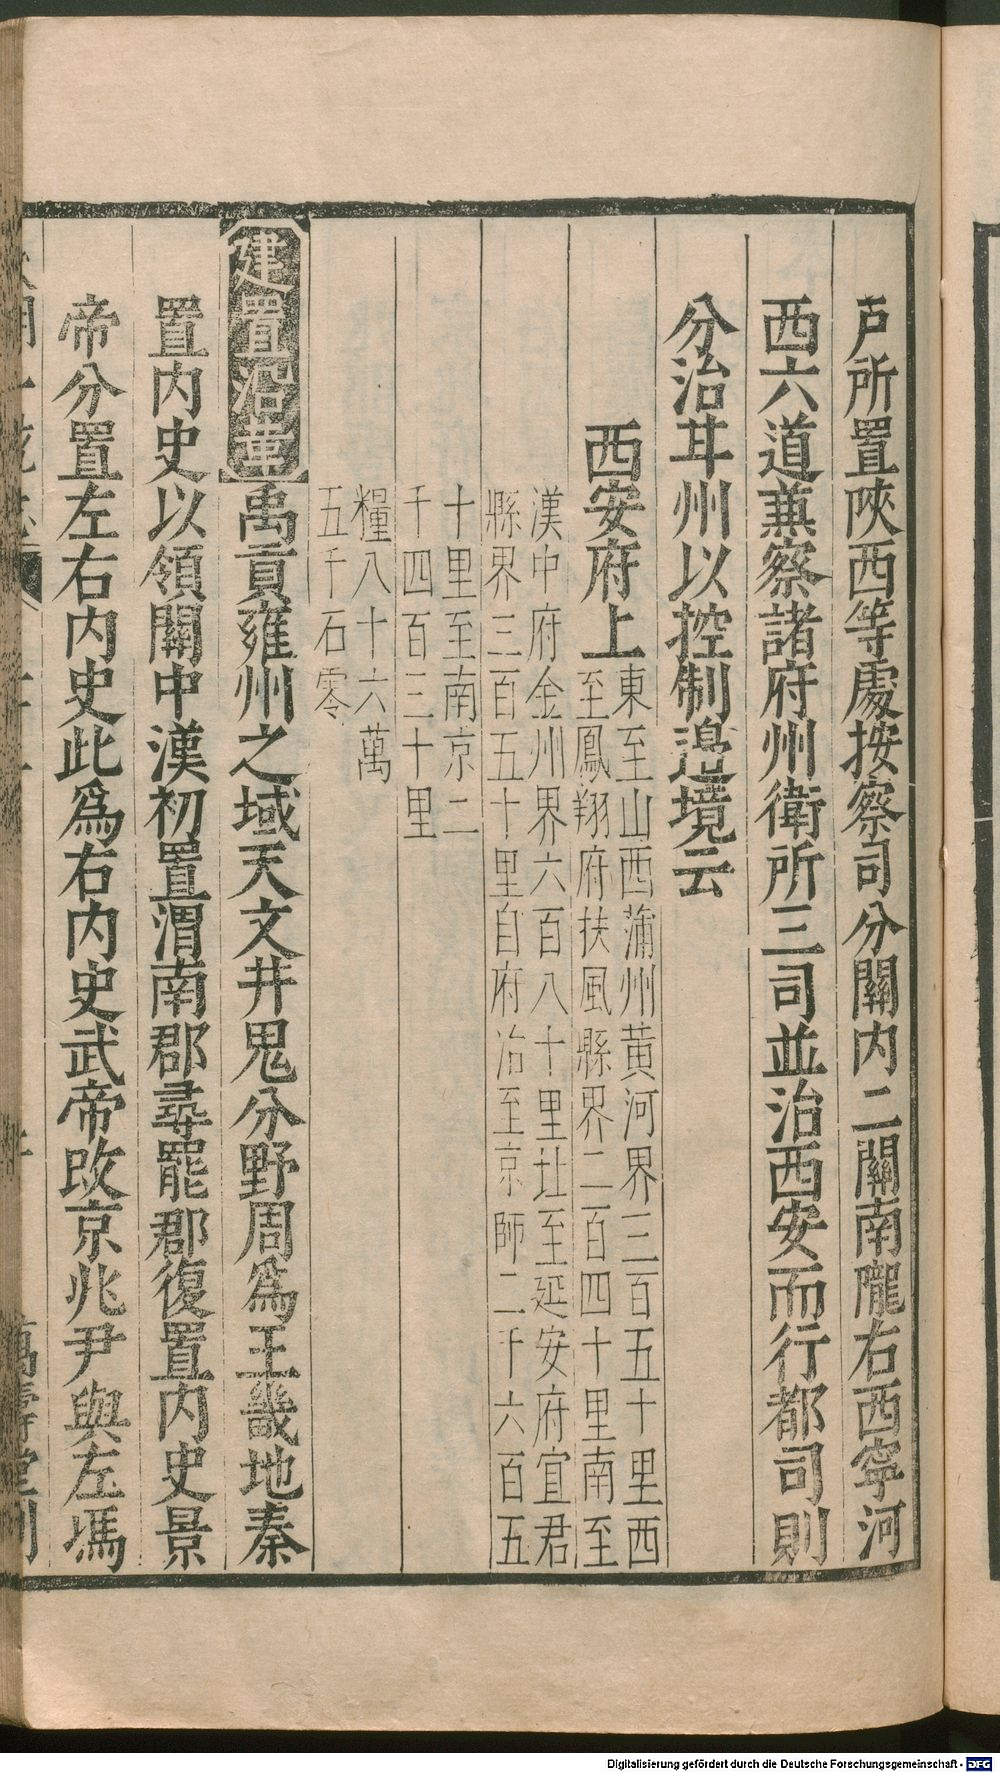 戸所置陝西等處按察司分關内二關南隴右西寧河
西六道兼察諸府州衛所三司並治西安而行都司則
分治甘州以控制邉境云
西安府上
東至山西蒲州黄河界三百五十里西
至鳳翔府扶風縣界二百四十里南至
漢中府金州界六百八十里北至延安府宜君
縣界三百五十里自府治至京師二千六百五
十里至南京二
千四百三十里
糧八十六萬
五千石零
建置沿革
禹貢雍州之域天文井鬼分野周爲王畿地秦
置内史以領關中漢初置渭南郡尋罷郡復置内史景
帝分置左右内史此爲右内史武帝改京兆尹與左馮
萬壽堂刊
Digitalisierung gefördert durch die Deutsche Forschungsgemeinschaft - DFG